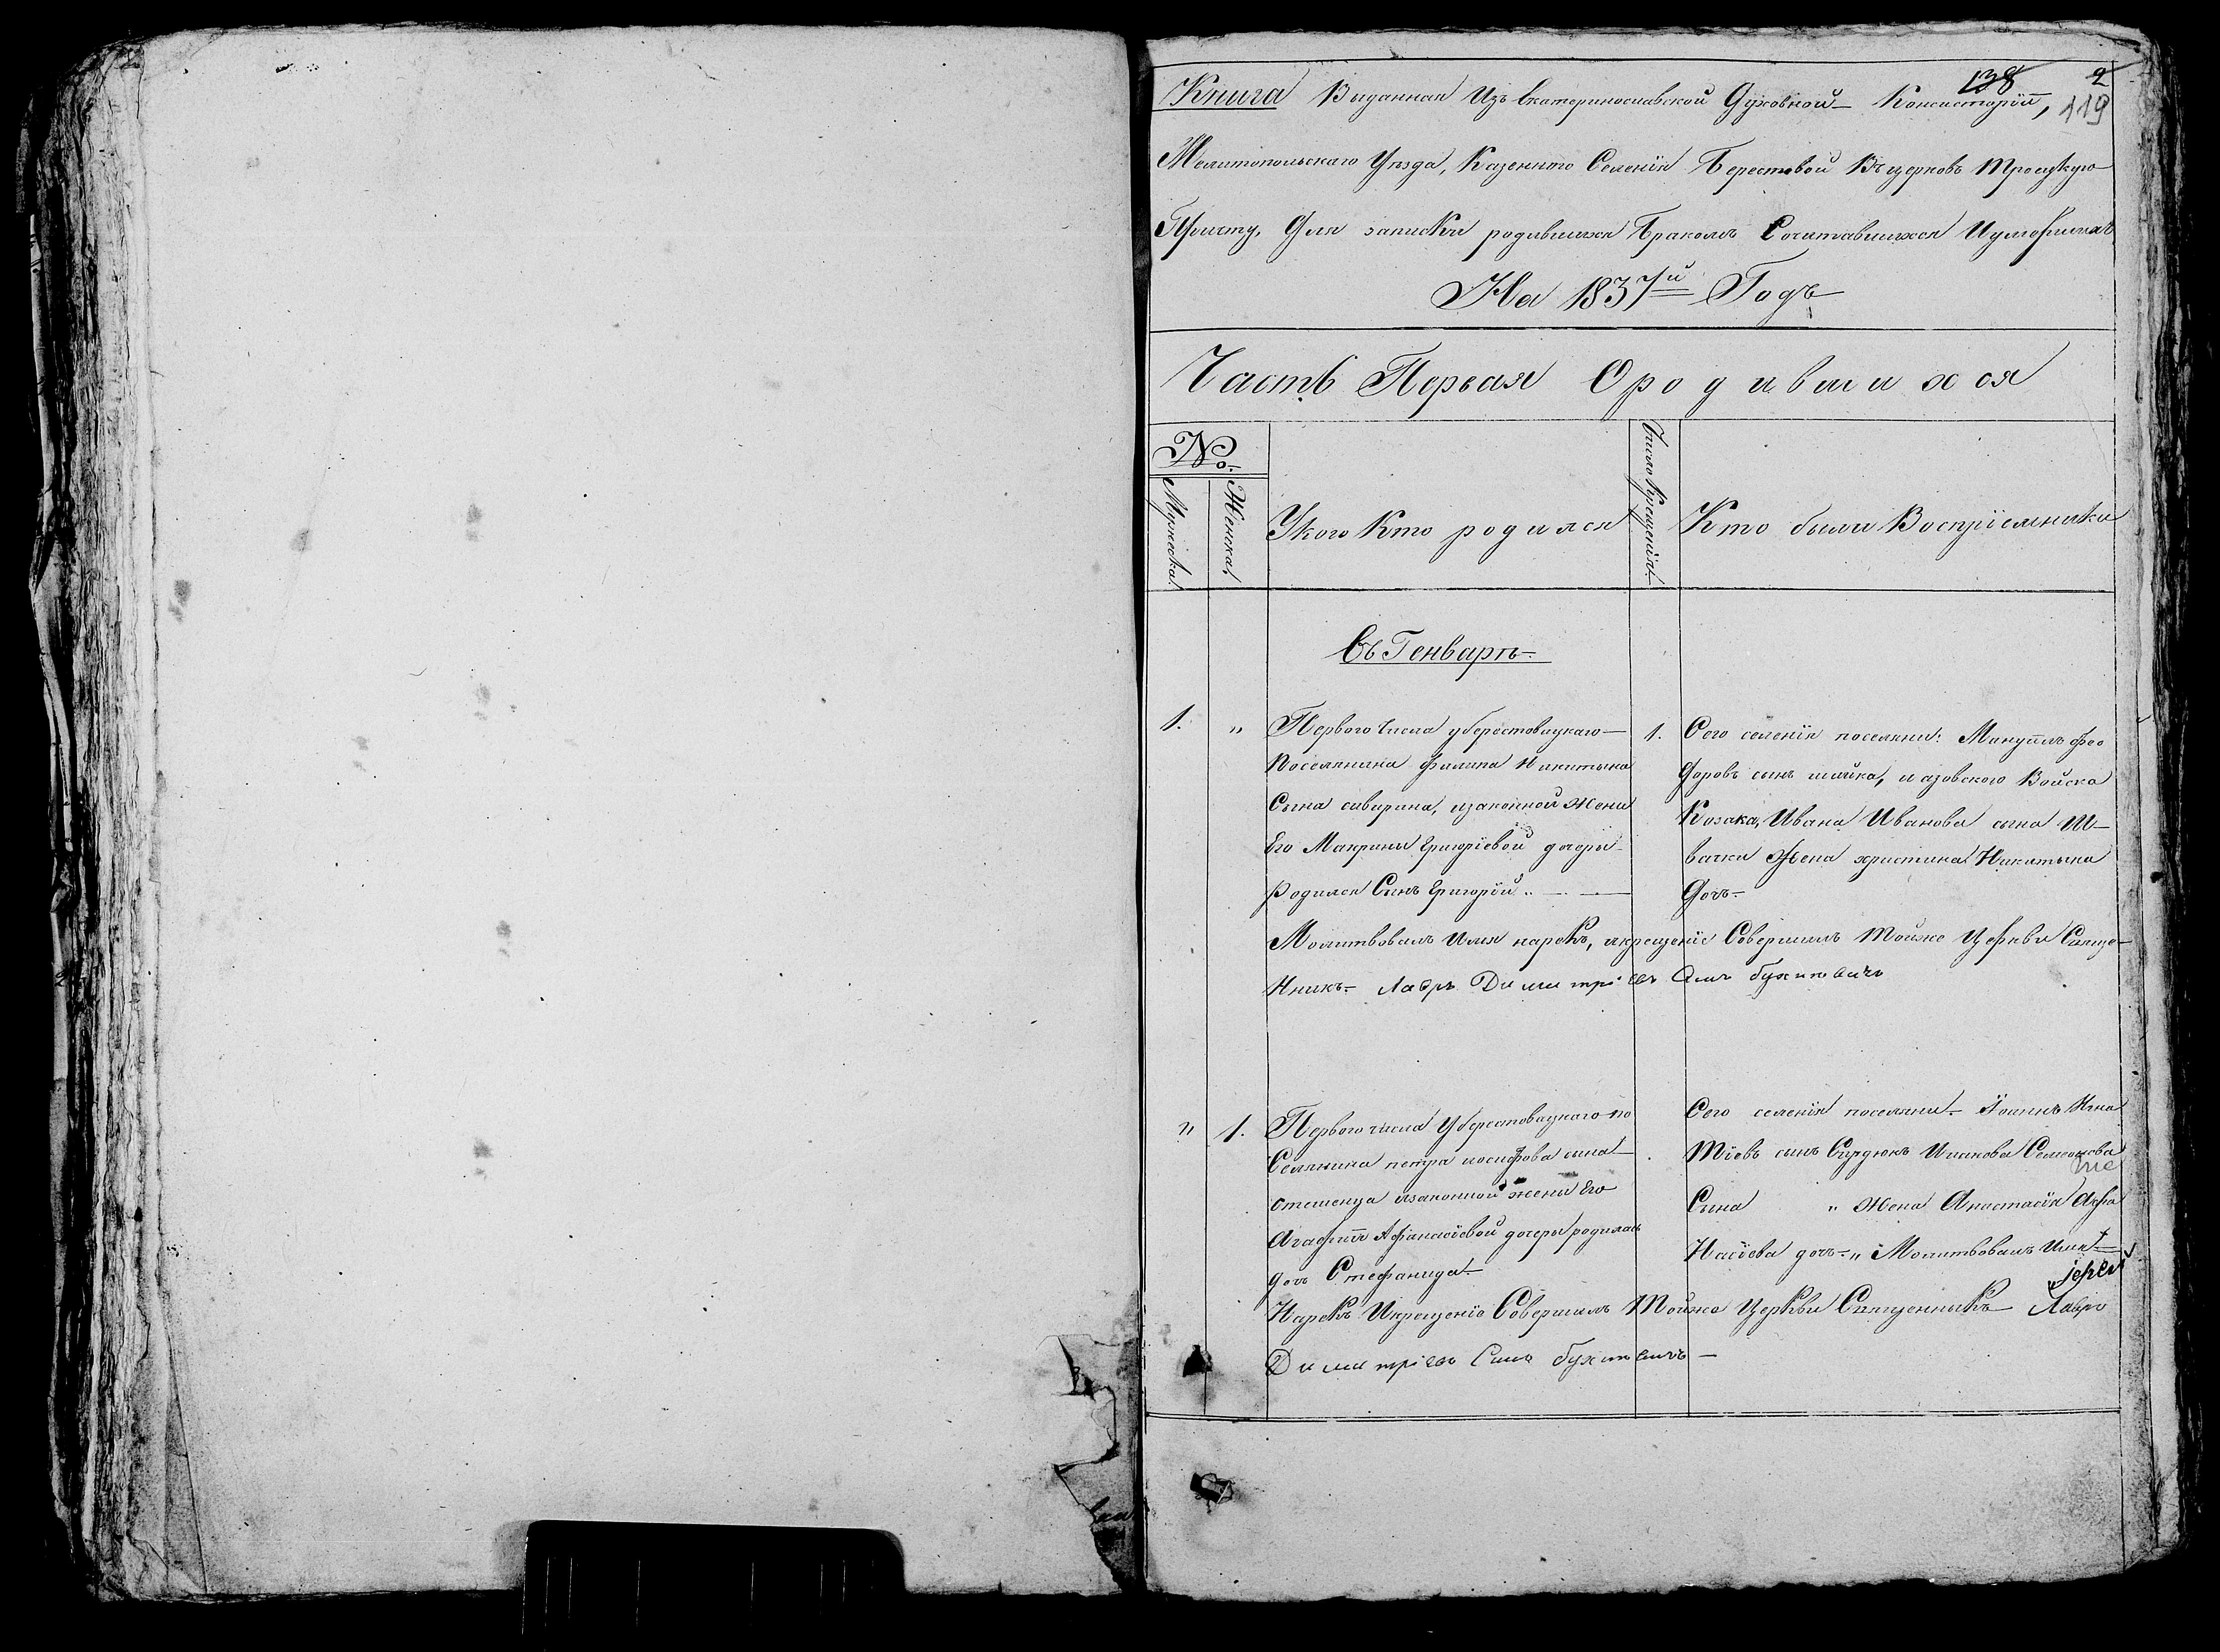 138 2
Книга Выданная Изъ Екатеринославской Духовной Консисторіи, 119
Мелитопольскаго Уѣзда, Казеннаго Селенія Берестовой Въ церковь Троицкую
Причту, Для записки родившихся Бракомъ Сочитавшихся И умершихъ
На 1837й Годъ
Часть Первая О родившихся
№
Мужеска
Женска
У кого Кто родился
Число Крещенія
Кто были Воспріемники
Въ Генварѣ
1. " Первого Числа у берестовицкаго
Поселянина Филипа Никитына
Сына сивирина, изаконной Жени
Его Макрины Григоріевой дочери
родился Сынъ Григорій
1. Сего селенія поселяни: Мануилъ Фео
доровъ сынъ шийка, и азовского Войска
Козака, Ивана Иванова сына Ш
вачки Жена христина Никитына
Дочь
Молитвовалъ Имя нарекъ, икрещеніе Совершилъ Тойже Церкви Свяще
нникъ Лавръ Димитріевъ Сынъ
" 1. Первого числа У берестовицкаго по
Селянина петра иосифова сына
стешенца изаконной жени Его
Агафіи Афанасіевой дочери родилась
дочь Стефанида
Сего селенія поселяни Іоаннъ Игна
Тіевъ сынъ Сирдюкъ Иякова Семіонова
Сына " Жена Анастасія Афа
Насіева дочь " Молитвовалъ Имя
іерей
Нарекъ Икрещеніе Совершилъ Тойже Церкви Священникъ Лавръ
Димитріевъ Сынъ